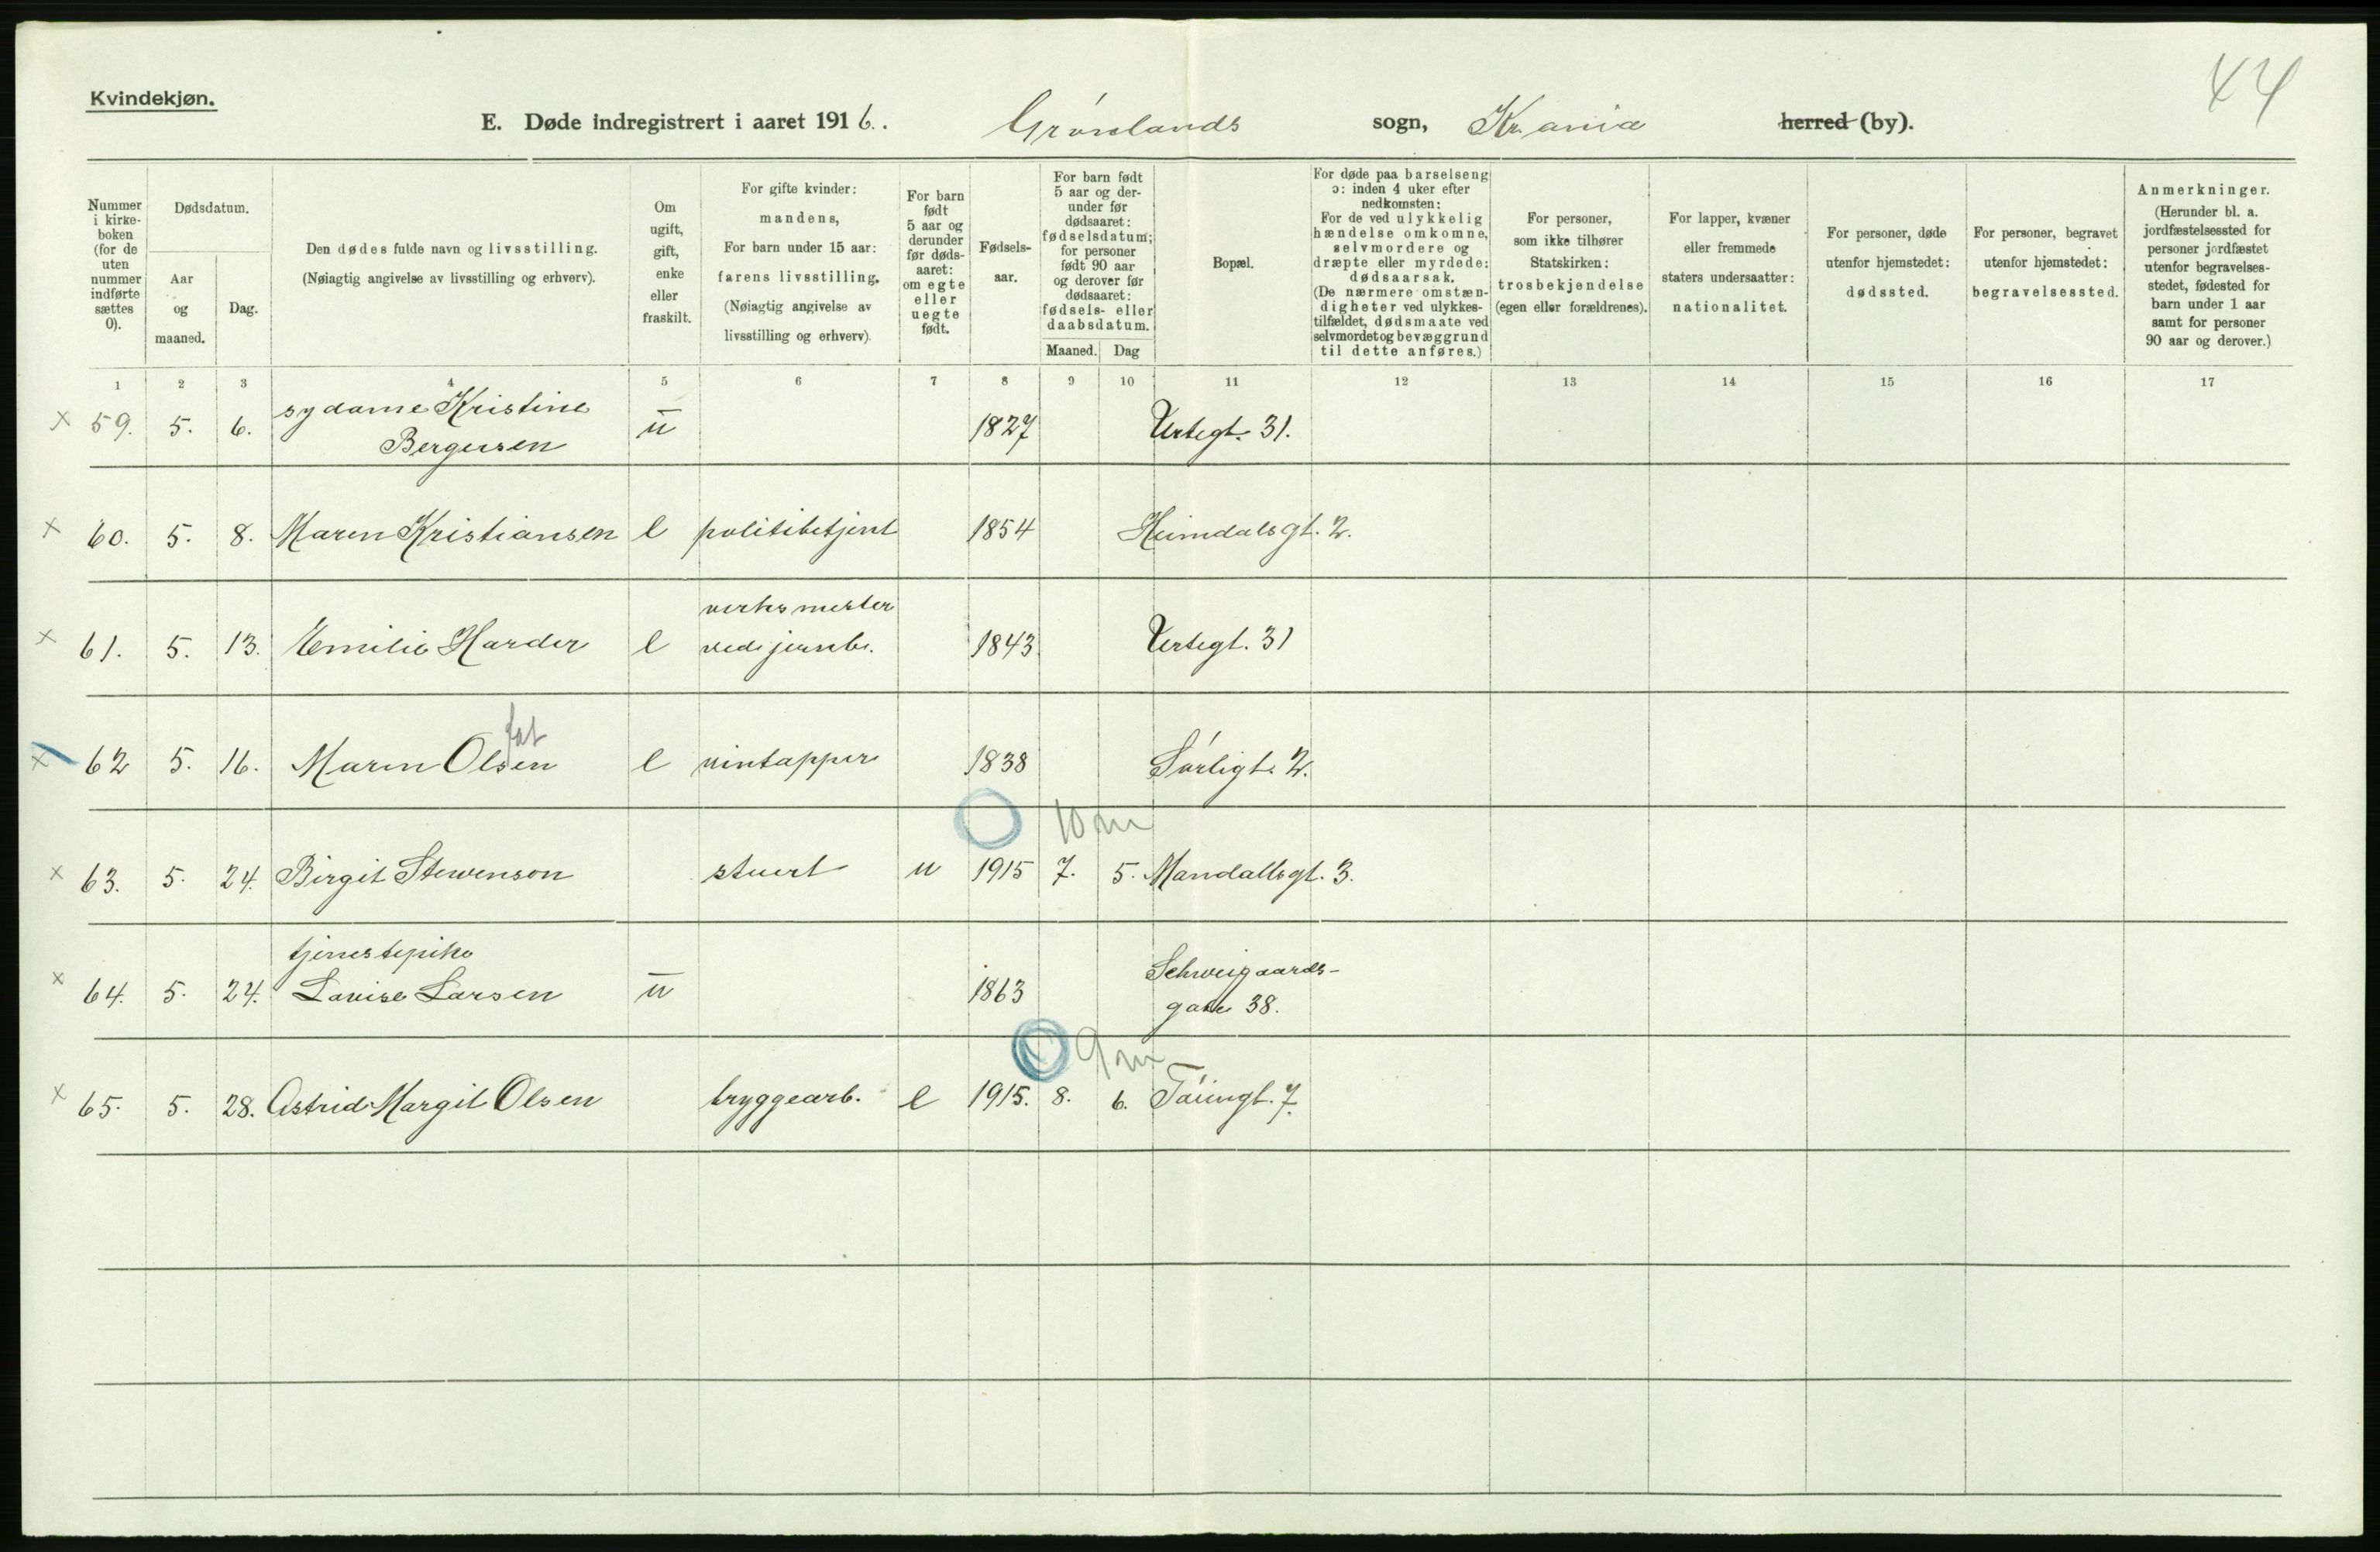 44
Kvindekjøn.
E. Døde indregistrert i aaret 1916. Grønlands sogn, Kr.ania herred (by).
Nummer i kirke-boken (for de uten nummer indførte sættes 0).
Dødsdatum.
Aar og maaned.
Dag.
Den dødes fulde navn og livsstilling.
(Nøiagtig angivelse av livsstilling og erhverv).
Om ugift, gift, enke eller fraskilt.
For gifte kvinder: mandens,
For barn under 15 aar: farens livsstilling.
(Nøiagtig angivelse av livsstilling og erhverv).
For barn født 5 aar og derunder før døds-aaret: om egte eller uegte født.
Fødsels-aar.
For barn født 5 aar og der-under før dødsaaret: fødselsdatum; for personer født 90 aar og derover før dødsaaret: fødsels- eller daabsdatum.
Maaned. Dag
Bopæl.
For døde paa barselseng ɔ: inden 4 uker efter nedkomsten:
For de ved ulykkelig hændelse omkomne, selvmordere og dræpte eller myrdede: dødsaarsak.
(De nærmere omstæn-digheter ved ulykkes-tilfældet, dødsmaate ved selvmordet og bevæggrund til dette anføres.)
For personer, som ikke tilhører Statskirken: trosbekjendelse (egen eller forældrenes).
For lapper, kvæner eller fremmede staters undersaatter: nationalitet.
For personer, døde utenfor hjemstedet: dødssted.
For personer, begravet utenfor hjemstedet: begravelsessted.
Anmerkninger.
(Herunder bl. a. jordfæstelsessted for personer jordfæstet utenfor begravelses-stedet, fødested for barn under 1 aar samt for personer 90 aar og derover.)
1 2 3 4 5 6 7 8 9 10 11 12 13 14 15 16 17
x 59. 5. 6. sydame Kristine Bergersen ū 1827 Urtegt. 31.
x 60. 5. 8. Maren Kristiansen e politibetjent 1854 Heimdalsgt. 2.
x 61. 5. 13. Emilie Harder e verksmester ved jernb. 1843 Urtegt. 31
fat
x 62 5. 16. Maren Olsen e vintapper 1838 Sørligt. 2.
10 m
x 63. 5. 24. Birgit Stewenson stuert u 1915 7. 5. Mandallsgt. 3.
x 64. 5. 24. tjenestepike Lovise Larsen ū 1863 Schweigaards-gate 38.
9 m
x 65. 5. 28. Astrid Margit Olsen bryggearb. e 1915. 8. 6. Tøiengt. 7.